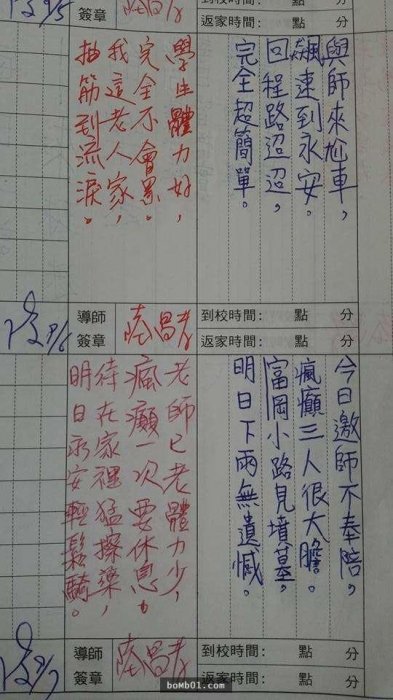 簽章
返家時間： 點 分
與師來尬車，
飆速到永安。
回程路迢迢，
完全超簡單。
學生體力好，
完全不會累。
我這老人家，
抽筋到流淚。
導師
簽章
到校時間： 點 分
返家時間： 點 分
今日邀師不奉陪，
瘋癲三人很大膽。
富岡小路見墳墓，
明日下雨無遺憾。
老師已老體力少，
瘋癲一次要休息。
待在家裡猛擦藥，
明日永安輕鬆騎。
導師
簽章
到校時間： 點 分
返家時間： 點 分
bomb01.com